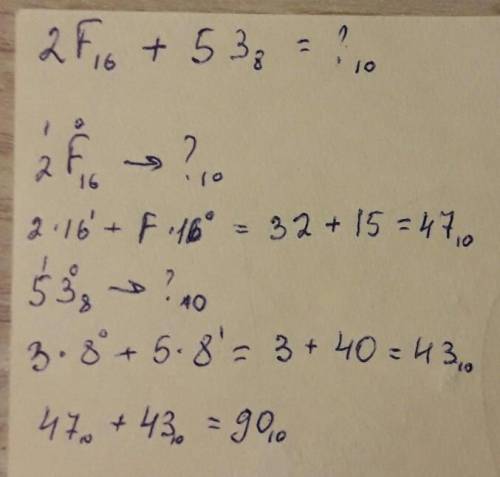 2F₁₆ + 53₈ = ?₁₀
¹ ⁰
2F₁₆ → ?₁₀
2·16¹ + F·16⁰ = 32 + 15 = 47₁₀
¹ ⁰
53₈ → ?₁₀
3·8⁰ + 5·8¹ = 3 + 40 = 43₁₀
47₁₀ + 43₁₀ = 90₁₀